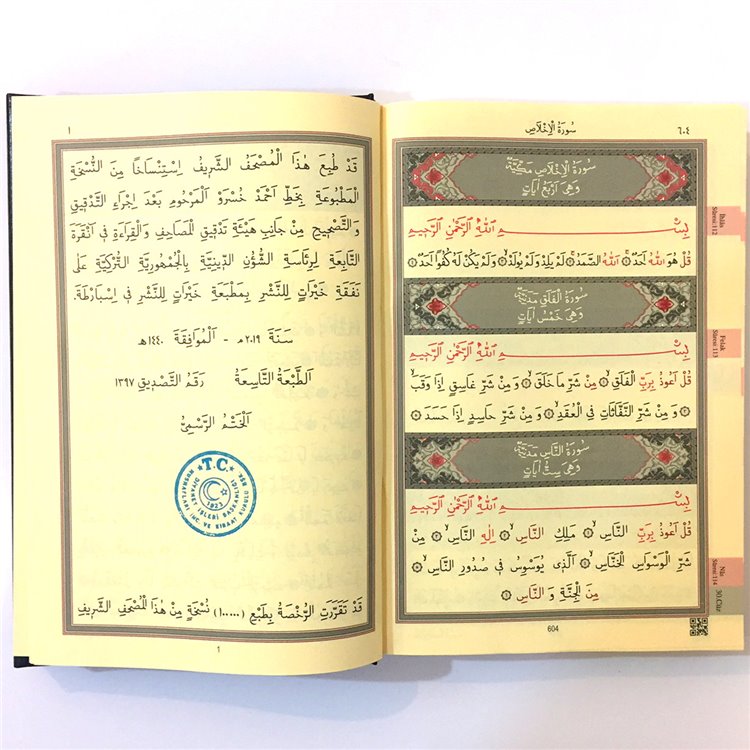 ٦٠٤
سُورَةُ الْاِخْلَاصِ
سُورَةُ الْاِخْلَاصِ مَكِّيَّةٌ
وَهِيَ اَرْبَعُ اٰيَاتٍ
بِسْمِ اللّٰهِ الرَّحْمٰنِ الرَّحِيمِ
قُلْ هُوَ اللّٰهُ اَحَدٌ ۝ اَللّٰهُ الصَّمَدُ ۝ لَمْ يَلِدْ وَلَمْ يُولَدْ ۝ وَلَمْ يَكُنْ لَهُ كُفُوًا اَحَدٌ ۝
سُورَةُ الْفَلَقِ مَدَنِيَّةٌ
وَهِيَ خَمْسُ اٰيَاتٍ
بِسْمِ اللّٰهِ الرَّحْمٰنِ الرَّحِيمِ
قُلْ اَعُوذُ بِرَبِّ الْفَلَقِ ۝ مِنْ شَرِّ مَا خَلَقَ ۝ وَمِنْ شَرِّ غَاسِقٍ اِذَا وَقَبَ ۝
وَمِنْ شَرِّ النَّفَّاثَاتِ فِي الْعُقَدِ ۝ وَمِنْ شَرِّ حَاسِدٍ اِذَا حَسَدَ ۝
سُورَةُ النَّاسِ مَدَنِيَّةٌ
وَهِيَ سِتُّ اٰيَاتٍ
بِسْمِ اللّٰهِ الرَّحْمٰنِ الرَّحِيمِ
قُلْ اَعُوذُ بِرَبِّ النَّاسِ ۝ مَلِكِ النَّاسِ ۝ اِلٰهِ النَّاسِ ۝ مِنْ
شَرِّ الْوَسْوَاسِ الْخَنَّاسِ ۝ اَلَّذِي يُوَسْوِسُ فِي صُدُورِ النَّاسِ ۝
مِنَ الْجِنَّةِ وَالنَّاسِ ۝
604
İhlâs
Sûresi:112
Felak
Sûresi:113
Nâs
Sûresi:114
30.Cüz
١
قَدْ طُبِعَ هٰذَا الْمُصْحَفُ الشَّرِيفُ اِسْتِنْسَاخًا مِنَ النُّسْخَةِ
الْمَطْبُوعَةِ بِخَطِّ اَحْمَدْ خُسْرَوْ اَلْمَرْحُومِ بَعْدَ اِجْرَاءِ التَّدْقِيقِ
وَالتَّصْحِيحِ مِنْ جَانِبِ هَيْئَةِ تَدْقِيقِ الْمَصَاحِفِ وَالْقِرَاءَةِ فِي اَنْقَرَةَ
التَّابِعَةِ لِرِئَاسَةِ الشُّؤُنِ الدِّينِيَّةِ بِالْجُمْهُورِيَّةِ التُّرْكِيَّةِ عَلَى
نَفَقَةِ خَيْرَاتْ لِلنَّشْرِ بِمَطْبَعَةِ خَيْرَاتْ لِلنَّشْرِ فِي اِسْبَارْطَةَ.
سَنَةَ ٢٠١٩م - اَلْمُوَافِقَةَ ١٤٤٠هـ
اَلطَّبْعَةُ التَّاسِعَةُ رَقْمُ التَّصْدِيقِ ١٣٩٧
اَلْخَتْمُ الرَّسْمِيُّ
T.C.
DİYANET İŞLERİ BAŞKANLIĞI
MUSHAFLARI İNC. VE KIRAAT KURULU
1923
قَدْ تَقَرَّرَتِ الرُّخْصَةُ بِطَبْعِ (١٠٠.٠٠٠) نُسْخَةٍ مِنْ هٰذَا الْمُصْحَفِ الشَّرِيفِ
1